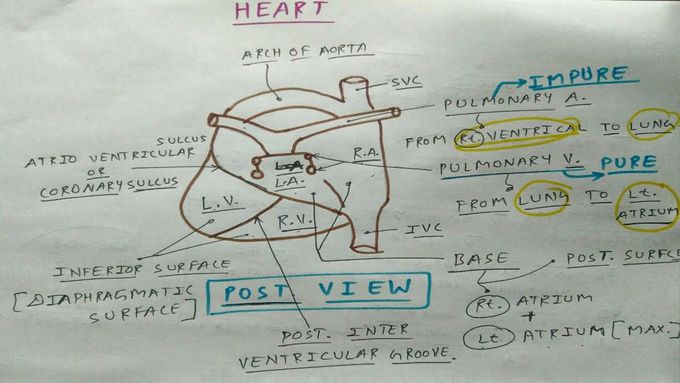 HEART
ARCH OF AORTA
SVC
IMPURE
PULMONARY A.
FROM Rt. VENTRICAL TO LUNG
SULCUS
ATRIO VENTRICULAR
OR
CORONARY SULCUS
R.A.
L.A.
L.A.
PULMONARY V. PURE
FROM LUNG TO Lt.
ATRIUM
L.V.
R.V.
IVC
INFERIOR SURFACE
[DIAPHRAGMATIC
SURFACE]
POST VIEW
BASE
POST. SURFCE
Rt. ATRIUM
+
Lt. ATRIUM [MAX.]
POST. INTER
VENTRICULAR GROOVE.